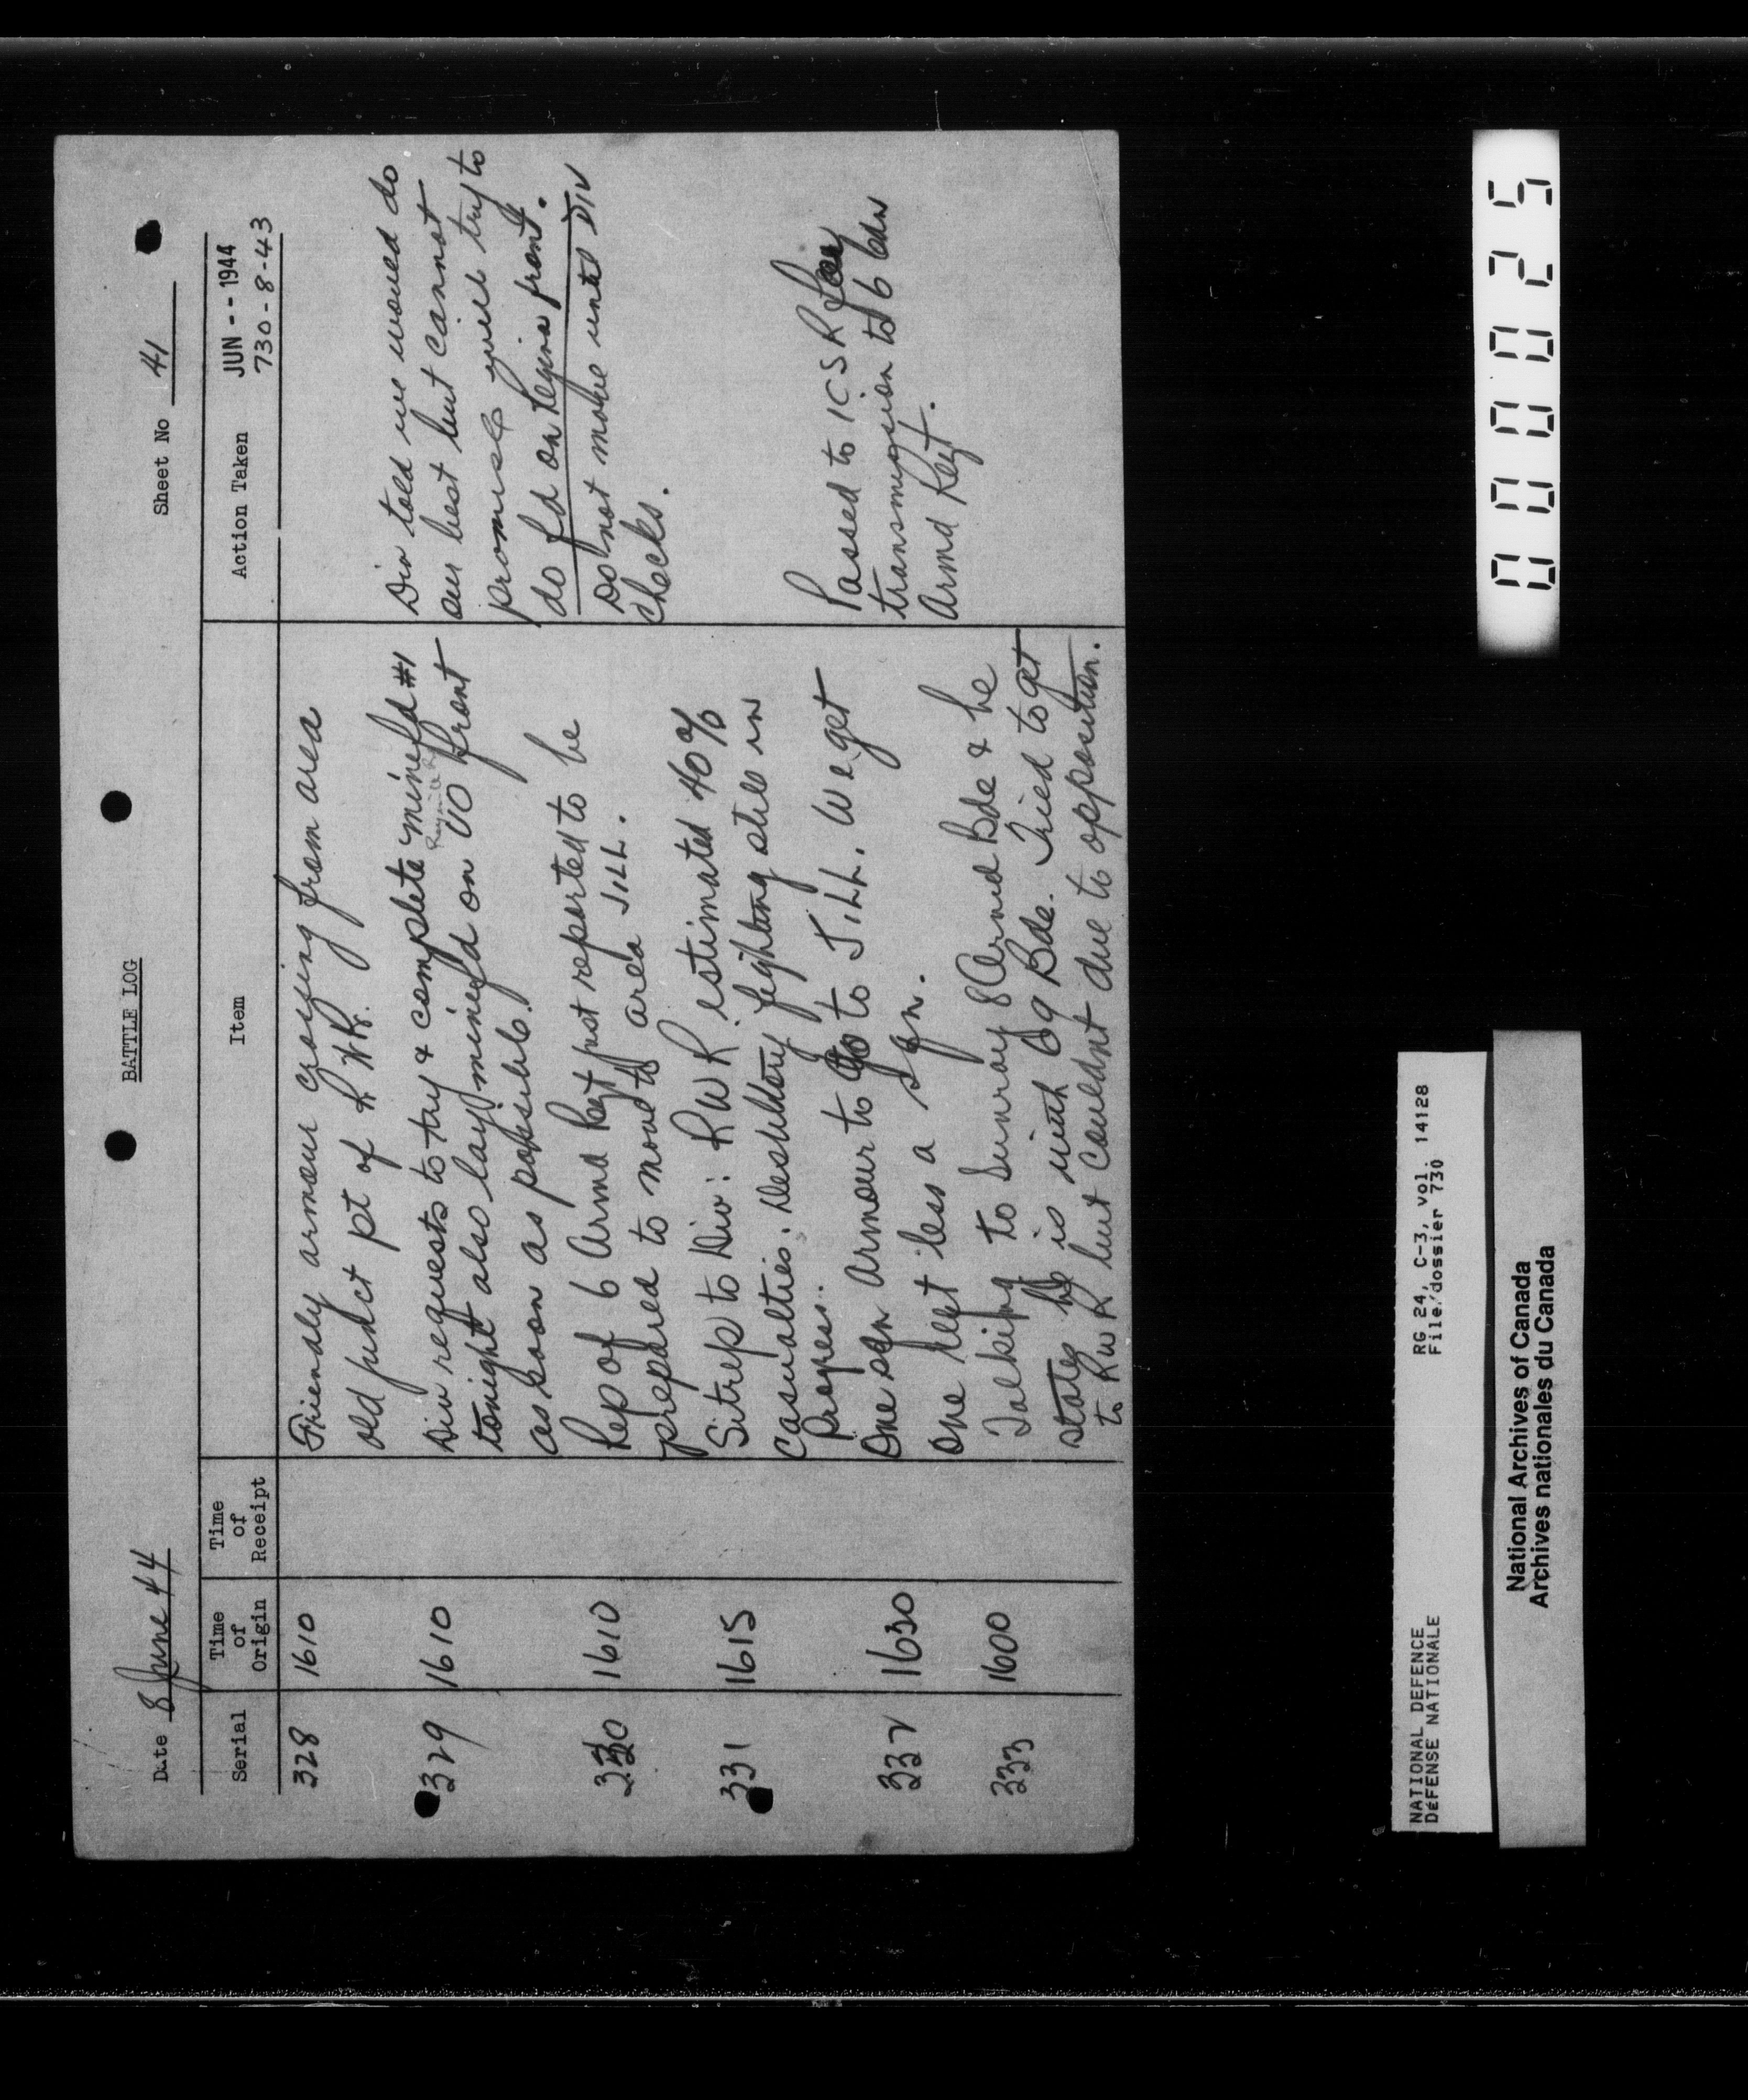 BATTLE LOG
Date 8 June 44
Sheet No 41
Serial
Time of Origin
Time of Receipt
Item
Action Taken
JUN -- 1944
730-8-43
328 1610 Friendly armour crossing from area
old junct pt of R W R.
329 1610 Div requests to try & complete minefd #1
tonight also lay minefd on UO front
as soon as possible.
Div told we would do
our best but cannot
promise will try to
do fd on Regina front.
330 1610 Rep of 6 Armd Regt just reported to be
prepared to move to area JILL.
Do not move until DIV
checks.
331 1615 Sitrep to Div: RWR estimated 40%
casualties. Desultory fighting still in
progress.
332 1630 One sqn Armour to go to JILL. We get
one regt less a sqn.
Passed to 1CSR for
transmission to 6 Cdn
Armd Regt.
333 1600 Talking to Sunray 8 Armd Bde & he
states he is with 69 Bde. Tried to get
to RWR but couldnt due to opposition.
000025
NATIONAL DEFENCE
DÉFENSE NATIONALE
RG 24, C-3, vol. 14128
File/dossier 730
National Archives of Canada
Archives nationales du Canada